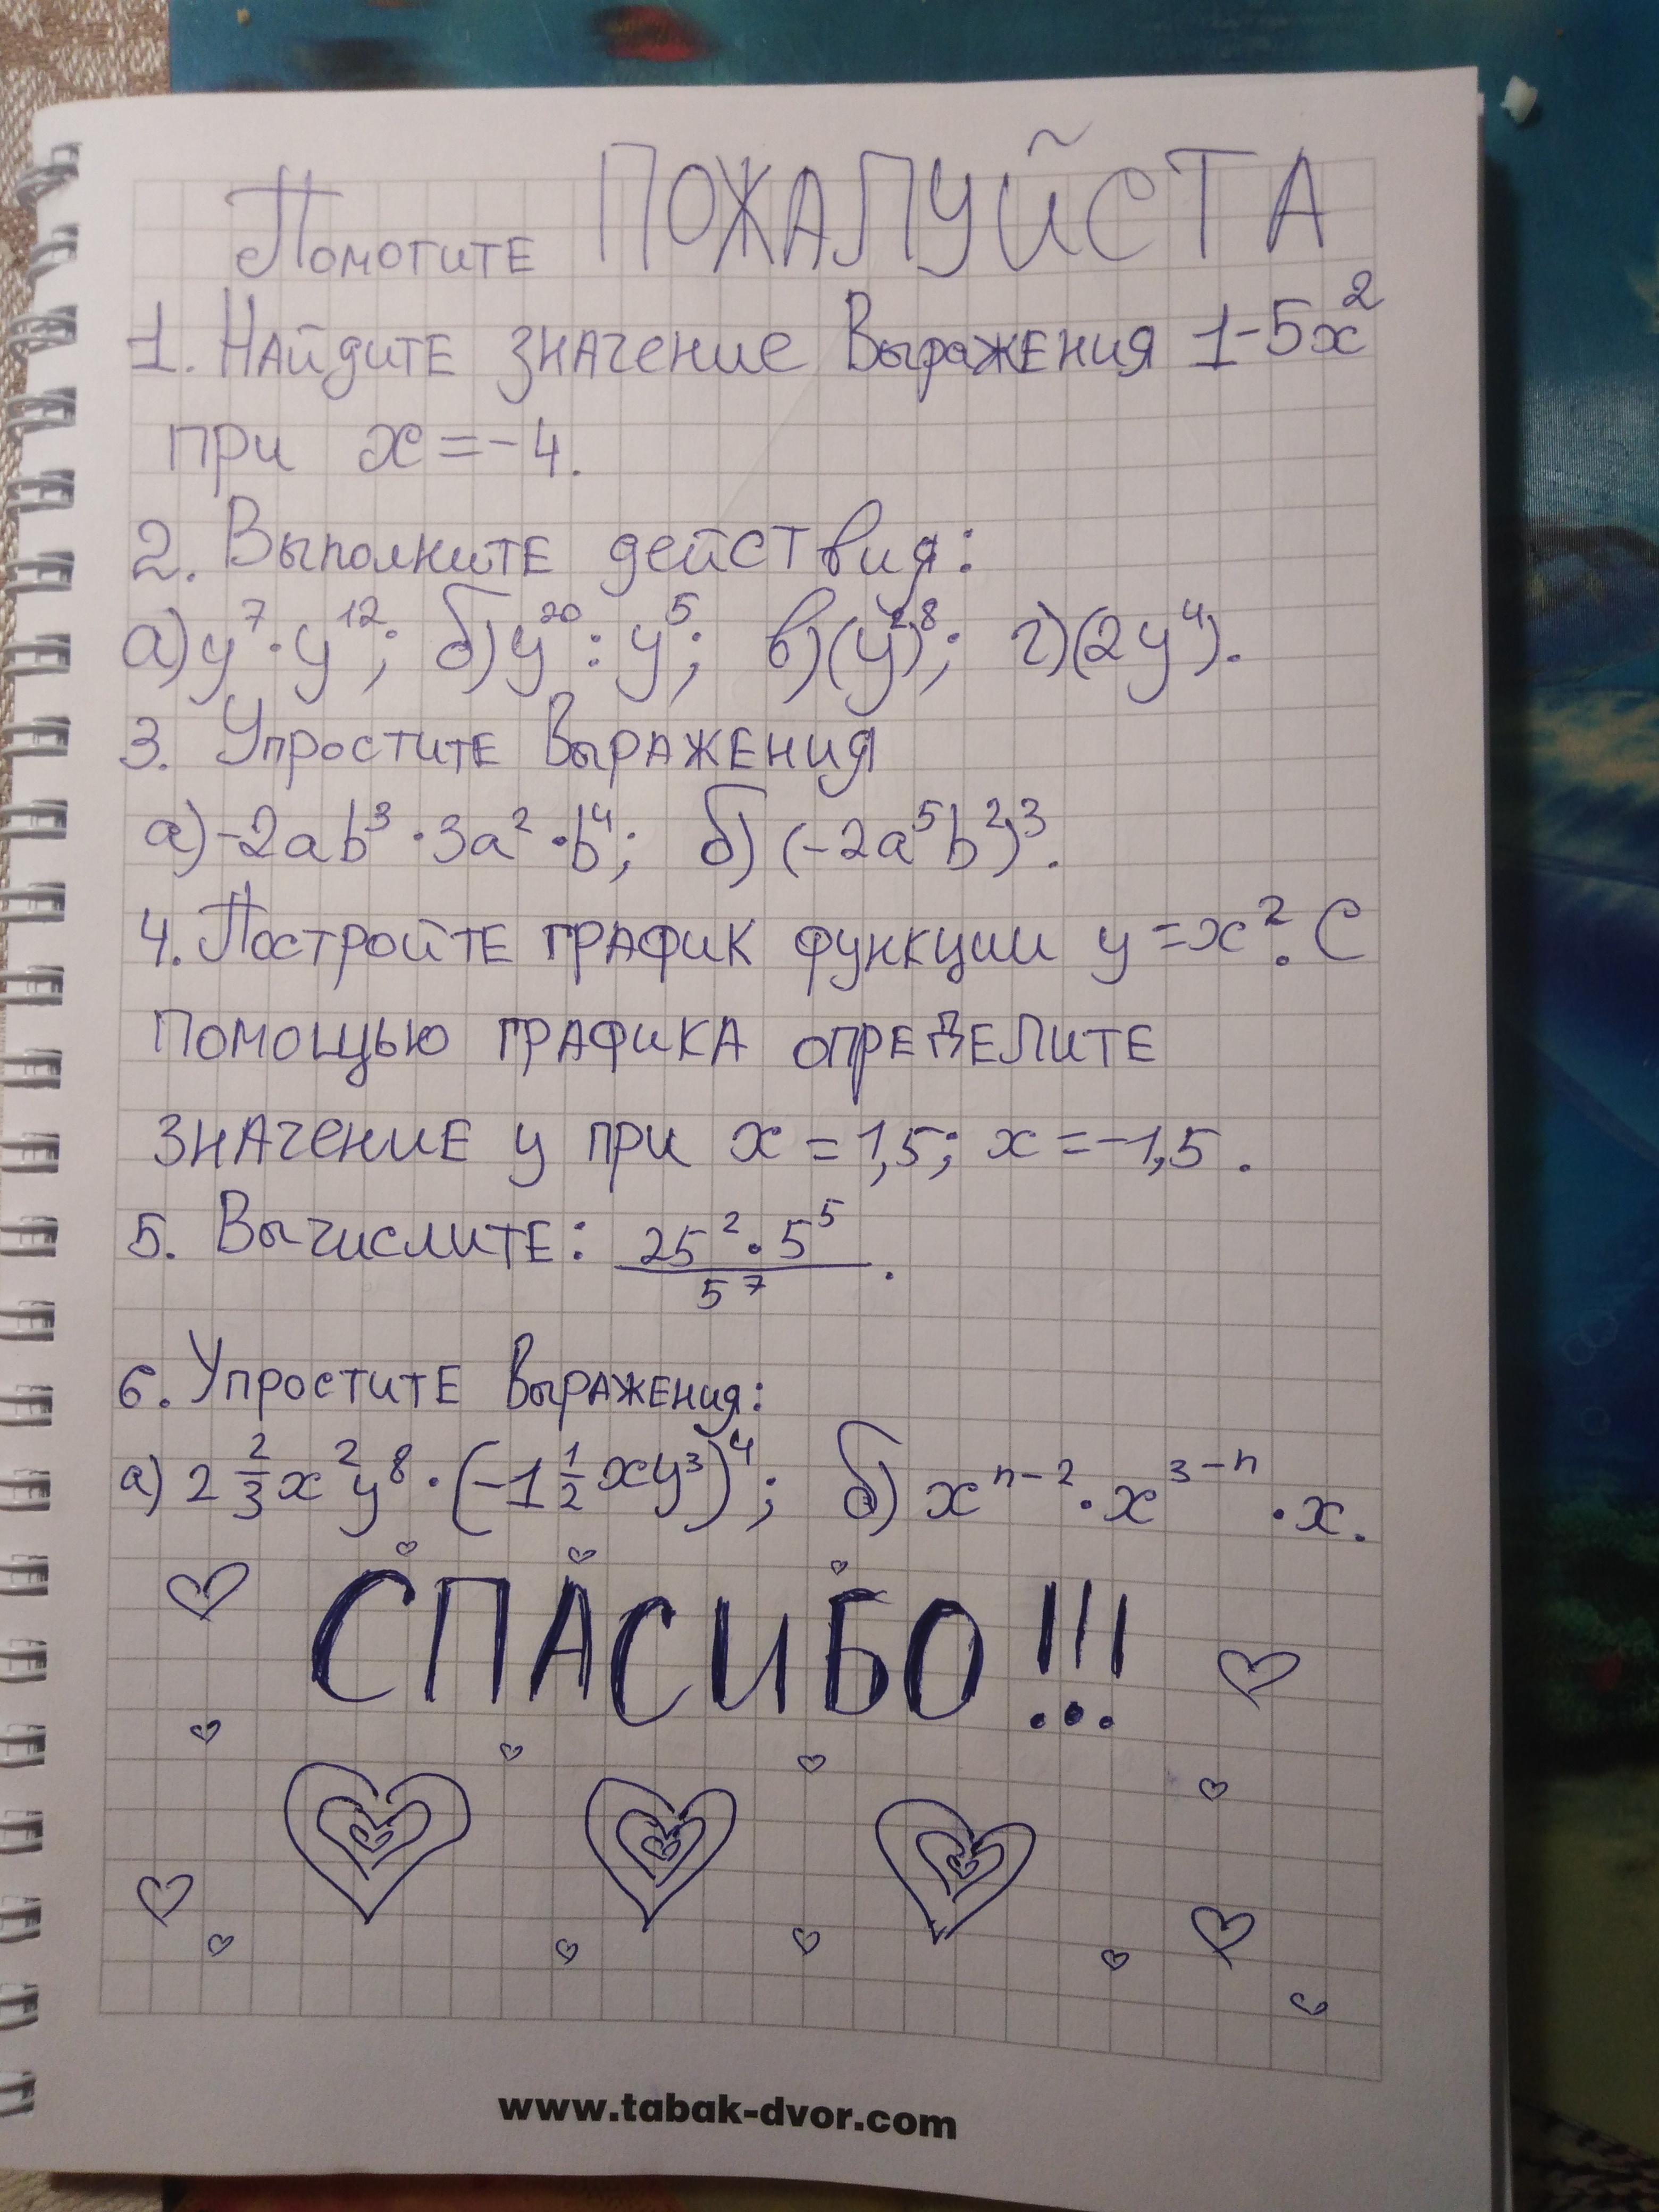 Помогите ПОЖАЛУЙСТА
1. Найдите значение выражения 1-5x²
при x=-4.
2. Выполните действия:
а) y⁷·y¹²; б) y²⁰:y⁵; в) (y²)⁸; г) (2y⁴).
3. Упростите выражения
а) -2ab³·3a²·b⁴; б) (-2a⁵b²)³.
4. Постройте график функции y=x². С
помощью графика определите
значение y при x=1,5; x=-1,5.
5. Вычислите: 25²·5⁵
5⁷.
6. Упростите выражения:
а) 2 2/3 x²y⁸·(-1 1/2 xy³)⁴; б) xⁿ⁻²·x³⁻ⁿ·x.
СПАСИБО!!!
www.tabak-dvor.com